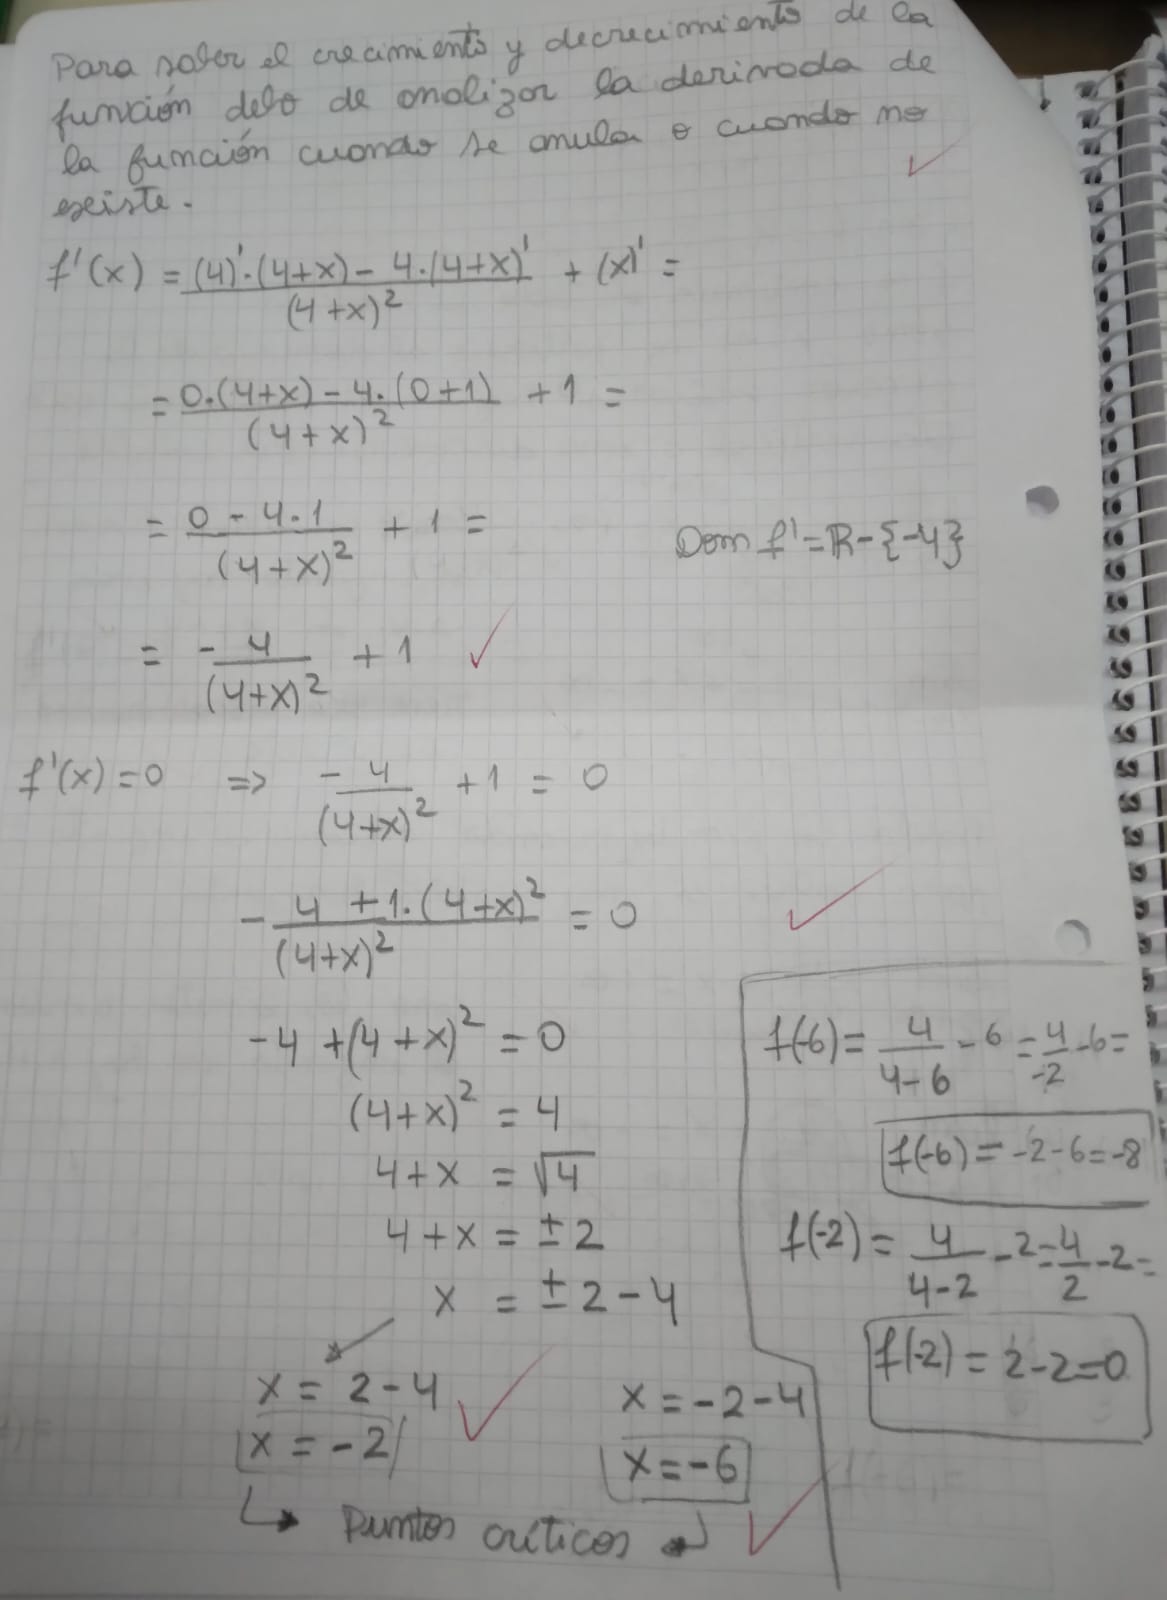 Para saber el crecimiento y decrecimiento de la
función debo de analizar la derivada de
la función cuando se anula o cuando no
existe.
f'(x) = ((4)'·(4+x) - 4·(4+x)')/(4+x)² + (x)' =
= (0·(4+x) - 4·(0+1))/(4+x)² + 1 =
= (0 - 4·1)/(4+x)² + 1 =
Dom f' = ℝ - {-4}
= -4/(4+x)² + 1
f'(x) = 0 => -4/(4+x)² + 1 = 0
-(4 + 1·(4+x)²)/(4+x)² = 0
-4 + (4+x)² = 0
(4+x)² = 4
4+x = √4
4+x = ±2
x = ±2-4
x = 2-4
x = -2
x = -2-4
x = -6
Puntos críticos
f(-6) = 4/(4-6) - 6 = 4/-2 - 6 =
f(-6) = -2-6 = -8
f(-2) = 4/(4-2) - 2 = 4/2 - 2 =
f(-2) = 2-2 = 0